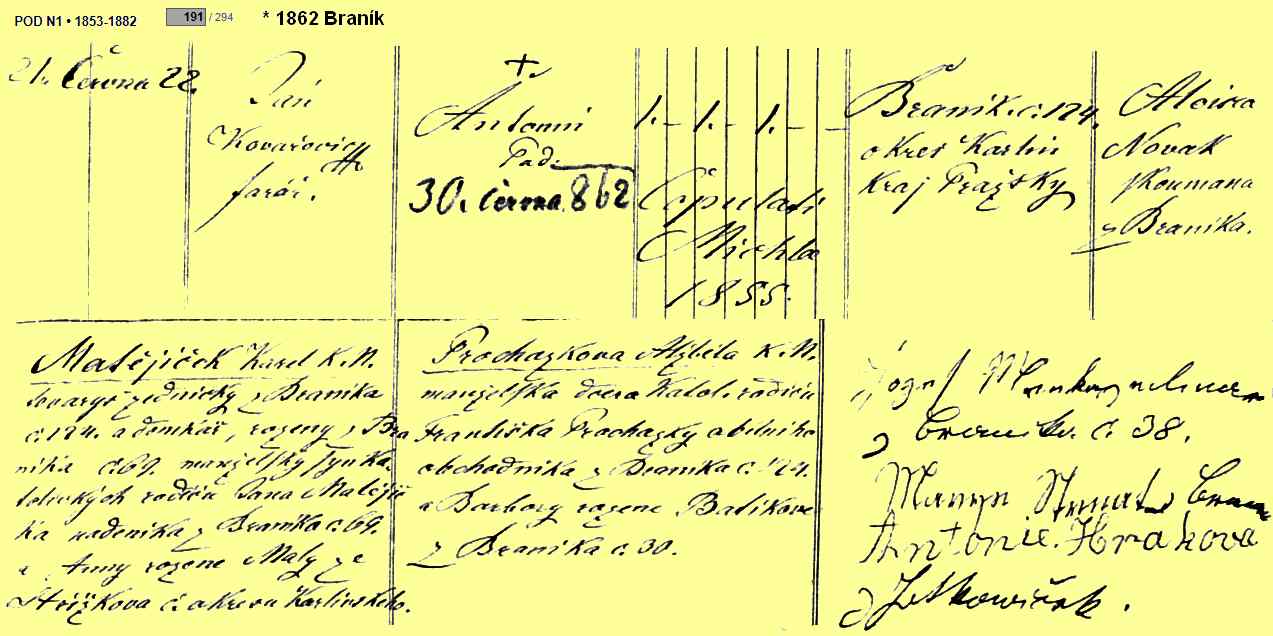 POD N1 • 1853-1882
191 / 294
* 1862 Braník
21. Června 22.
Jan
Kovařovic
farář.
Antonin
Tad.
30. června 862
1. - 1. - 1. - -
Copulati
Michle
1855.
Branik. c. 124.
okres Karlin
Kraj Pražsky
Aloisia
Novak
z Branika.
Matějiček Karel K. N.
tovaryš zednický z Branika
c. 124. a domkář, rozeny z Bra
nika c. 69. manzelsky syn Ka.
tolických rodičů Jana Matějič
ka nadenika z Branika c. 69.
a Anny rozene Maly ze
Střížkova c. okresu Karlinskeho.
Prochazkova Alžběta K. N.
manzelska dcera Katol. rodičů
Františka Prochazky obilniho
obchodnika z Branika c. 124.
a Barbory rozene Batikove
z Branika c. 30.
Jozef
c. 38.
Antonie. Hrakova
z